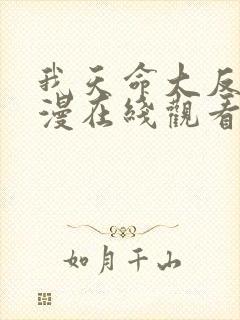 我天命大反
漫在綫觀看
如月千山